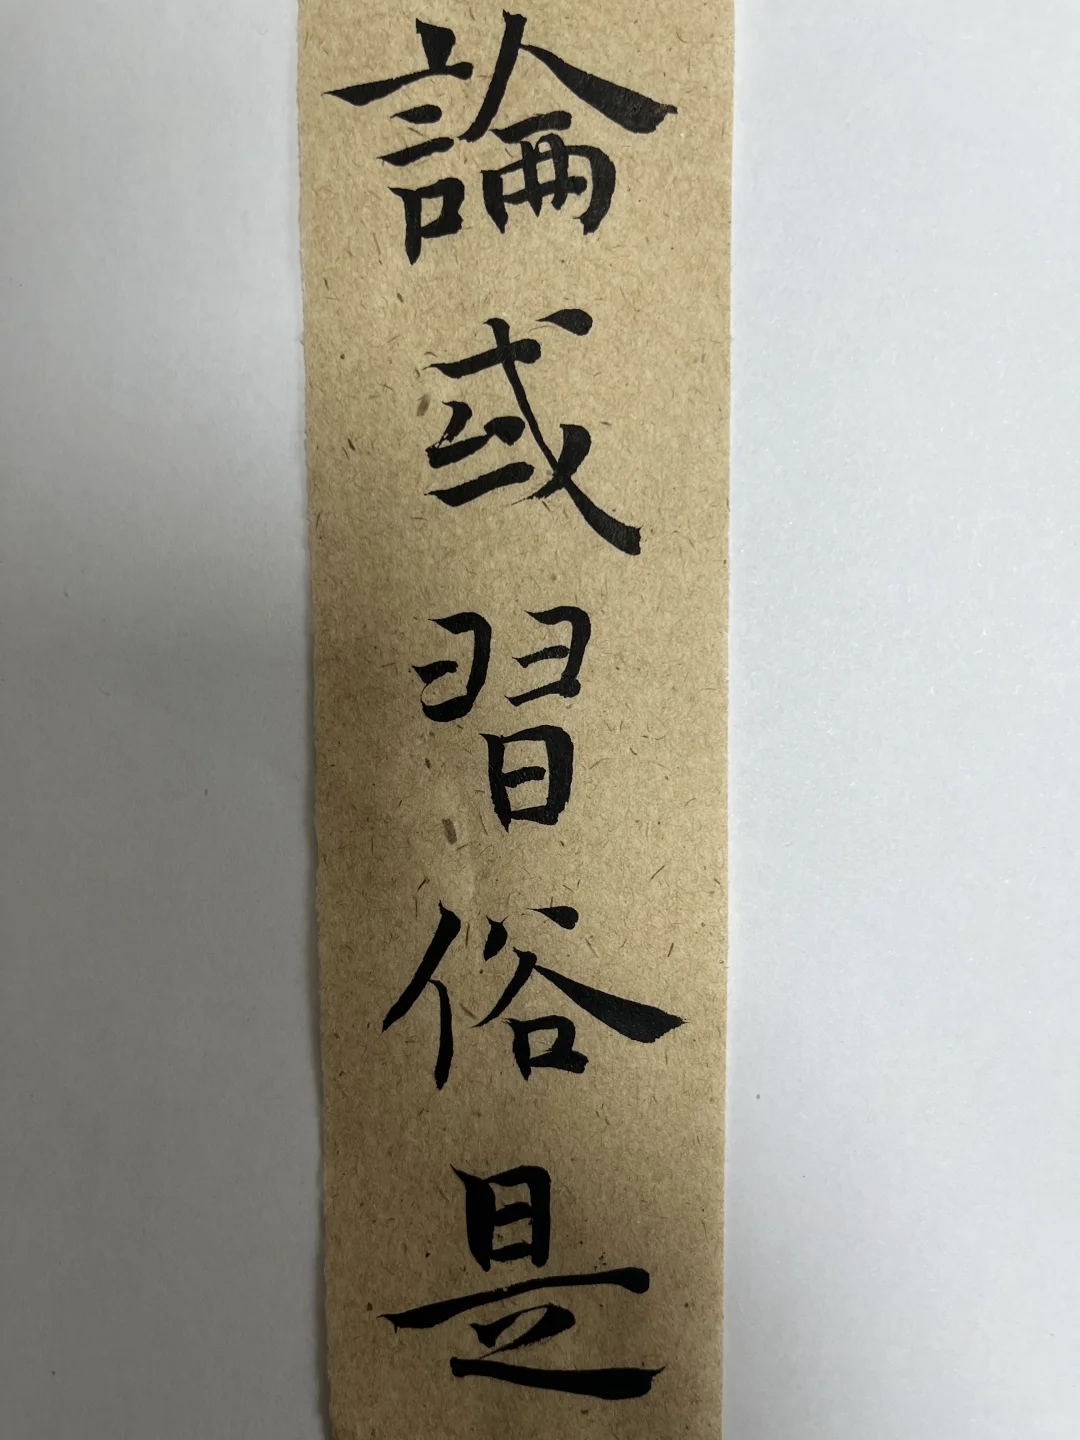 論或習俗是